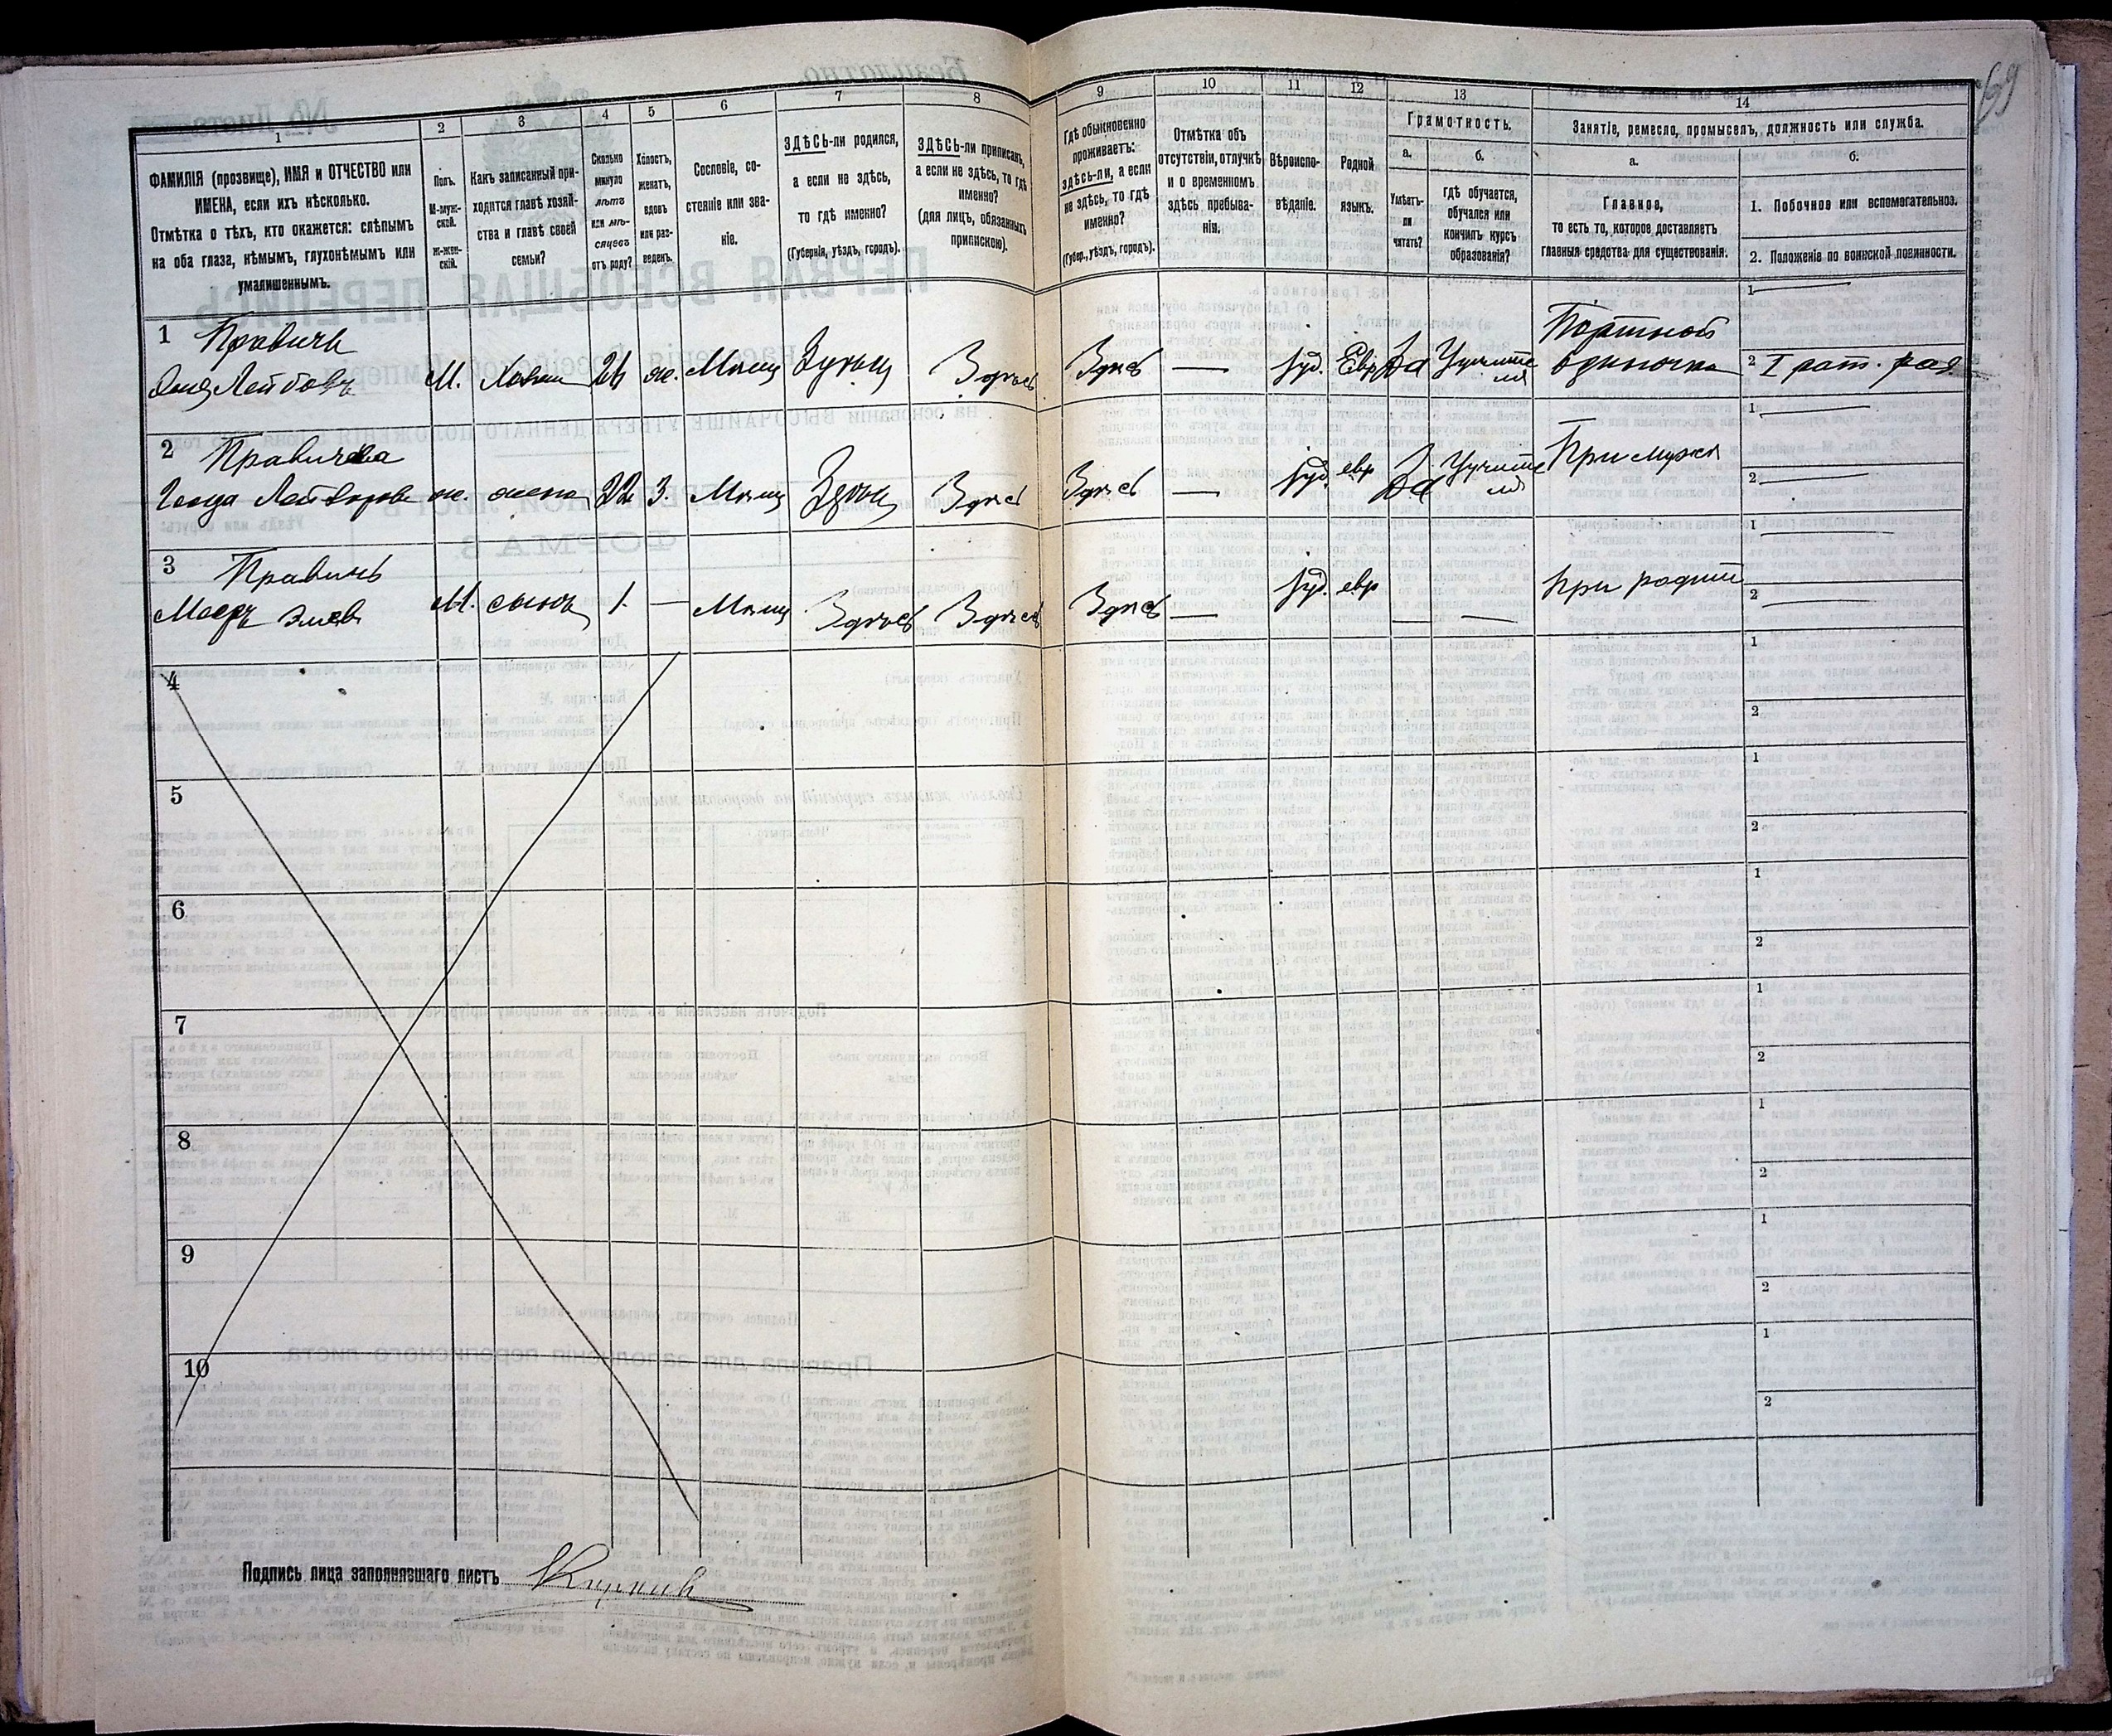 69
1
2
3
4
5
6
7
8
9
10
11
12
13
14
ФАМИЛІЯ (прозвище), ИМЯ и ОТЧЕСТВО или
ИМЕНА, если ихъ нѣсколько.
Отмѣтка о тѣхъ, кто окажется: слѣпымъ
на оба глаза, нѣмымъ, глухонѣмымъ или
умалишеннымъ.
Полъ.
М-муж-
ской.
Ж-жен-
скій.
Какъ записанный при-
ходится главѣ хозяй-
ства и главѣ своей
семьи?
Сколько
минуло
лѣтъ
или мѣ-
сяцевъ
отъ роду?
Холостъ,
женатъ,
вдовъ
или раз-
веденъ.
Сословіе, со-
стояніе или зва-
ніе.
ЗДѢСЬ-ли родился,
а если не здѣсь,
то гдѣ именно?
(Губернія, уѣздъ, городъ).
ЗДѢСЬ-ли приписанъ,
а если не здѣсь, то гдѣ
именно?
(для лицъ, обязанныхъ
припискою).
Гдѣ обыкновенно
проживаетъ:
здѣсь-ли, а если
не здѣсь, то гдѣ
именно?
(Губер., уѣздъ, городъ).
Отмѣтка объ
отсутствіи, отлучкѣ
и о временномъ
здѣсь пребыва-
ніи.
Вѣроиспо-
вѣданіе.
Родной
языкъ.
Грамотность.
а.
Умѣетъ-
ли
читать?
б.
гдѣ обучается,
обучался или
кончилъ курсъ
образованія?
Занятіе, ремесло, промыселъ, должность или служба.
а.
Главное,
то есть то, которое доставляетъ
главныя средства для существованія.
б.
1. Побочное или вспомогательное.
2. Положеніе по воинской повинности.
1 Правичъ
Лейбовъ М. 26 ж. Мѣщ Здѣсь Здѣсь Здѣсь — Іуд. Евр Да Учителя Портной одиночка
1 —
2 I рат. раз.
2 Правичева
ж. жена 22 З. Мѣщ Здѣсь Здѣсь Здѣсь — Іуд. евр Да Учителя При мужѣ
1 —
2 —
3 Правичъ
Мееръ М. сынъ 1. — Мѣщ Здѣсь Здѣсь Здѣсь — Іуд. евр — — при родит
1 —
2 —
4
1
2
5
1
2
6
1
2
7
1
2
8
1
2
9
1
2
10
1
2
Подпись лица заполнявшаго листъ